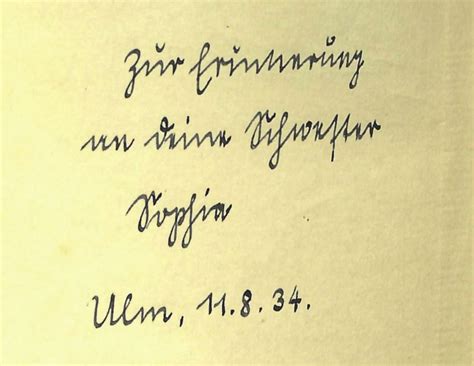 Zur Erinnerung
an deine Schwester
Sophia
Ulm, 11.8.34.